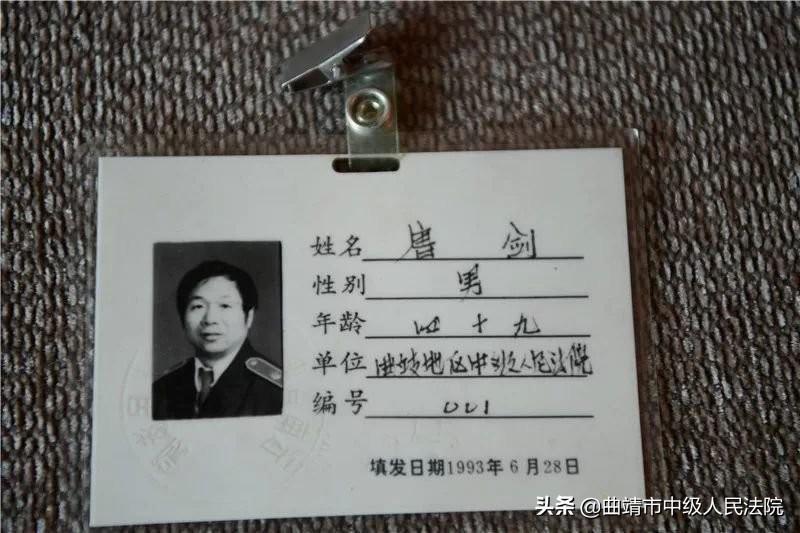 姓名 唐 剑
性别 男
年龄 四十九
单位 曲靖地区中级人民法院
编号 001
填发日期1993年6月28日
头条 @曲靖市中级人民法院